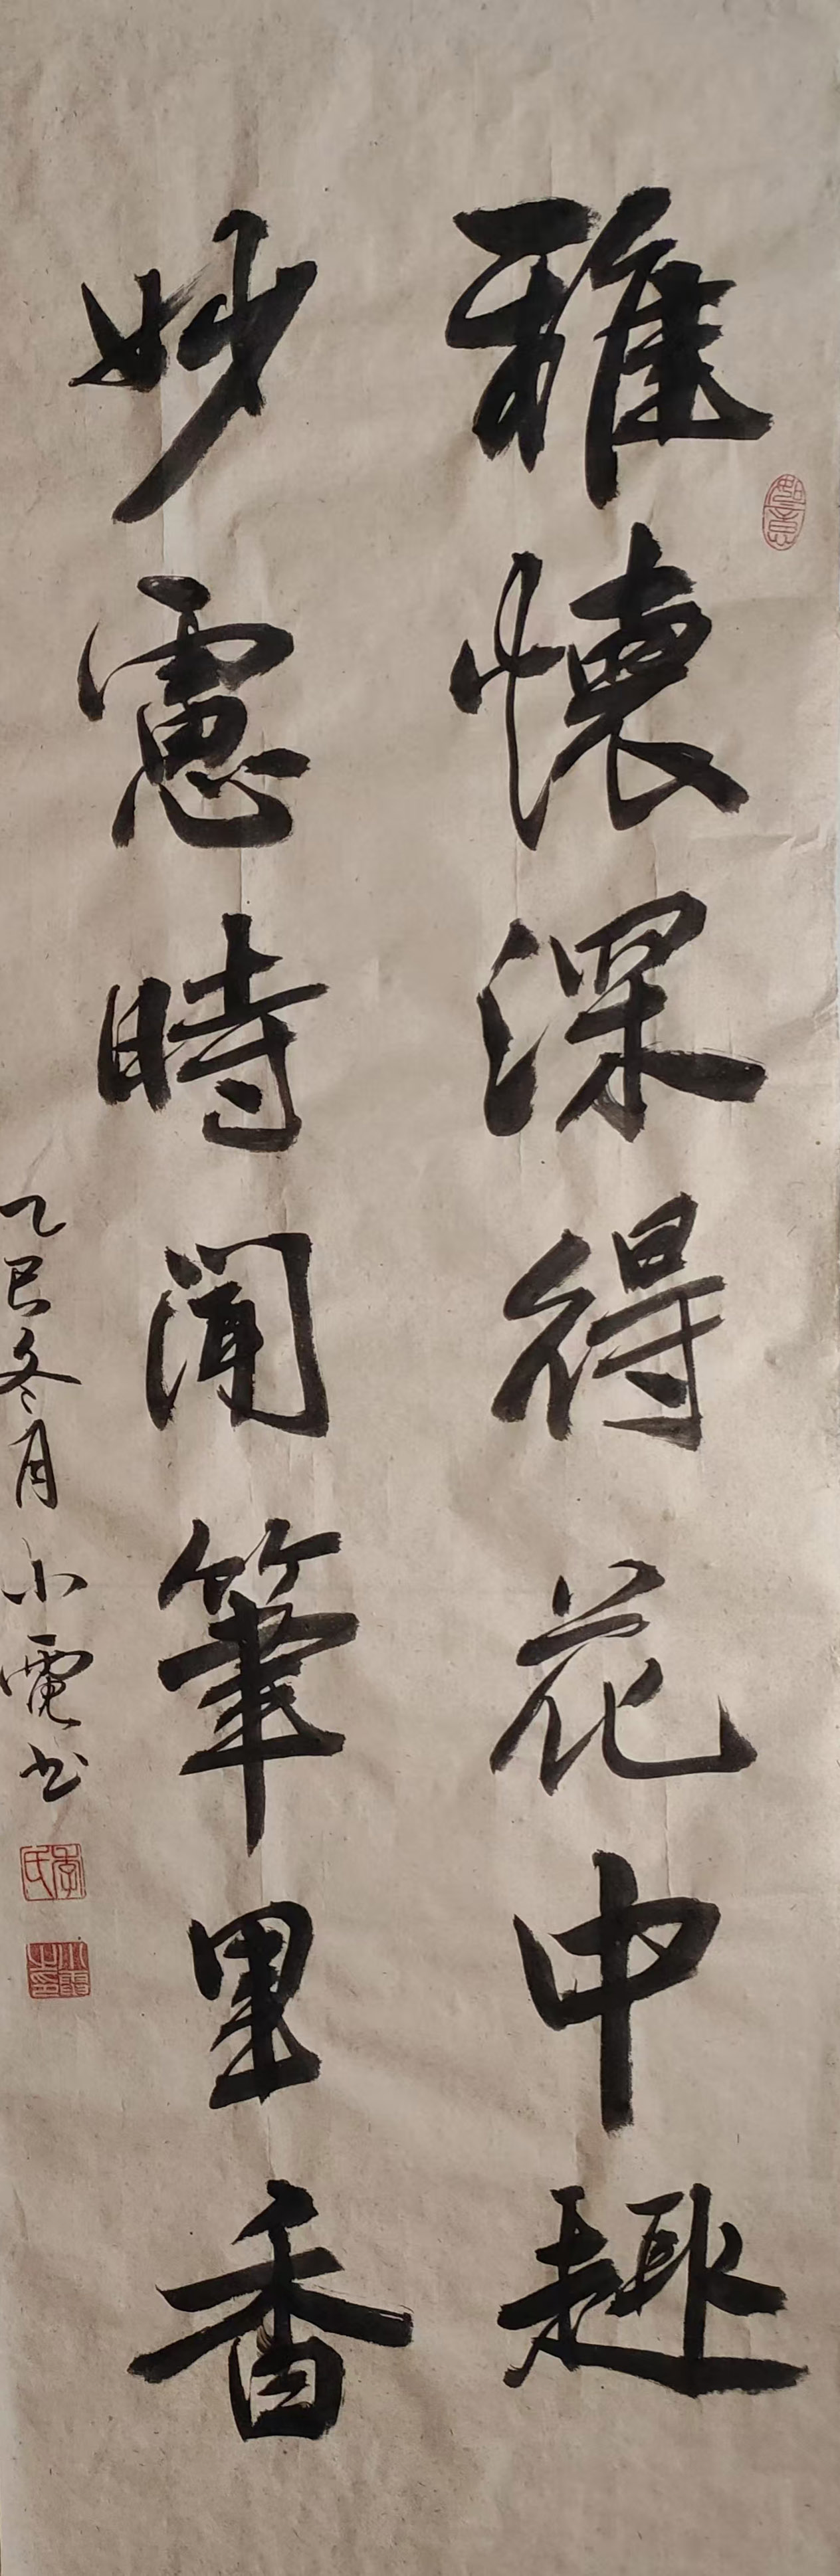 雅懷深得花中趣
妙慮時聞筆里香
乙巳冬月小電书
李氏